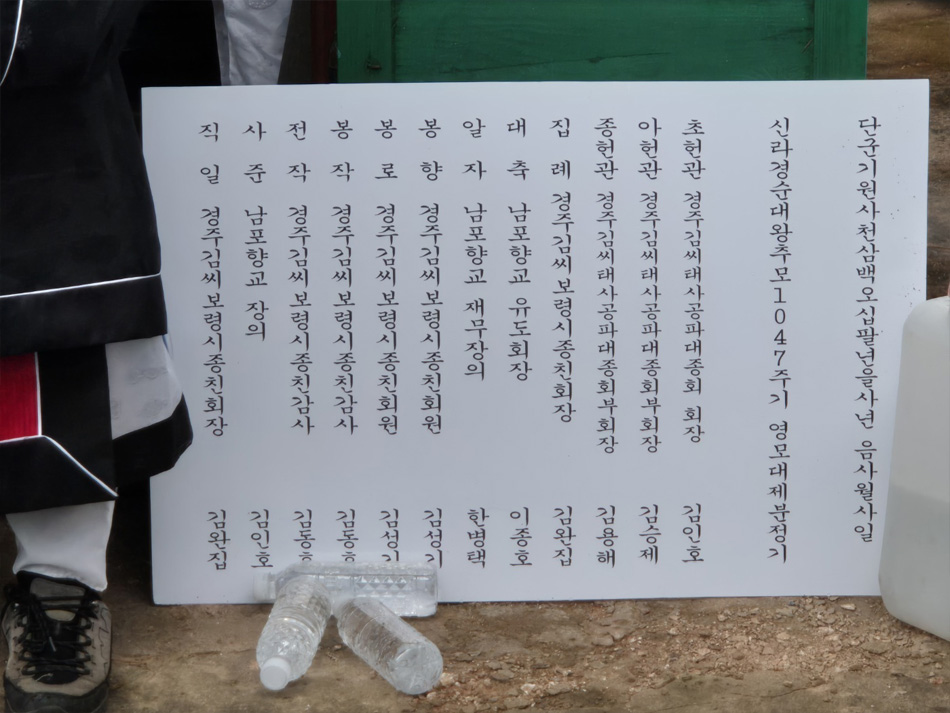 단군기원사천삼백오십팔년을사년 음사월사일
신라경순대왕추모1047주기 영모대제분정기
초헌관 경주김씨태사공파대종회 회장 김인호
아헌관 경주김씨태사공파대종회부회장 김승제
종헌관 경주김씨태사공파대종회부회장 김용해
집례 경주김씨보령시종친회장 김완집
대축 남포향교 유도회장 이종호
알자 남포향교 재무장의 한병택
봉향 경주김씨보령시종친회원
봉로 경주김씨보령시종친회원
봉작 경주김씨보령시종친감사
전작 경주김씨보령시종친감사
사준 남포향교 장의 김인호
직일 경주김씨보령시종친회장 김완집